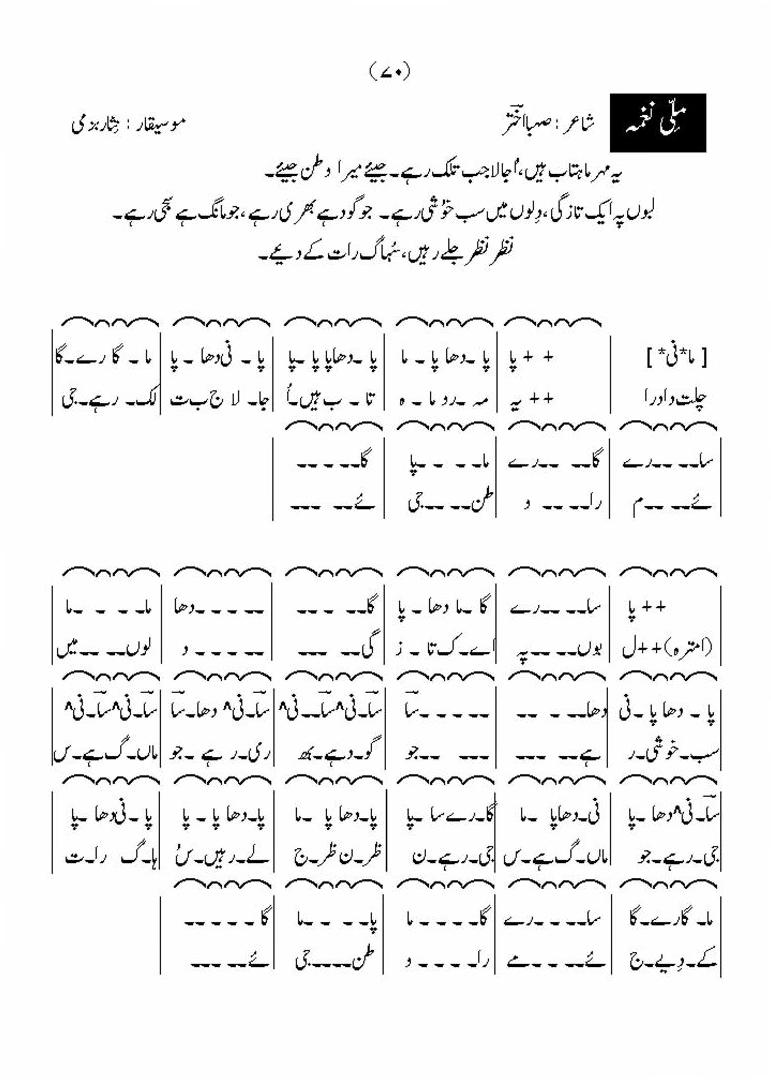 (۷۰)
ملّی نغمہ شاعر : صہبا اختر موسیقار : نِثار بزمی
یہ مہر ماہتاب ہیں، اُجالا جب تلک رہے۔ جیئے میرا وطن جیئے۔
لبوں پہ ایک تازگی، دِلوں میں سب خوُشی رہے۔ جو گود ہے بھری رہے، جو مانگ ہے سجی رہے۔
نظر نظر جلے رہیں، سُہاگ رات کے دیئے۔
[ما* نی*] + + پا پا ۔ دھا پا ۔ ما پا ۔ دھاپا پا ۔پا پا ۔ نی دھا ۔ پا ما ۔ گا رے۔گا
چلت دادرا ++ یہ مہ ۔رو ما ۔ ہ تا ۔ ب ہیں۔اُ جا۔ لا ج ب ت لک۔ رہے۔جی
سا۔۔ ۔۔رے گا۔۔ ۔۔رے ما۔ ۔ ۔ ۔پا گا۔۔ ۔ ۔۔
ئے۔۔ ۔۔م را۔۔ ۔۔ و طن۔۔ ۔۔جی ئے۔۔ ۔۔۔
++ پا سا۔۔ ۔۔رے گا ۔ما دھا ۔ پا گا۔۔ ۔ ۔۔ ۔۔ ۔ ۔ ۔دھا ما۔ ۔ ۔ ۔ما
(انترہ)++ل بوں۔۔ ۔۔پہ اے۔ک تا ۔ ز گی۔۔ ۔۔۔ ۔۔ ۔ ۔ ۔ د لوں۔۔ ۔۔میں
پا ۔ دھا پا ۔ نی دھا۔۔ ۔ ۔۔ ۔۔ ۔ ۔ ۔سا سا۔نی^سا۔۔نی^ سا۔نی^ دھا۔سا سا۔نی^سا۔نی^
سب۔خوُشی۔ر ہے۔۔ ۔۔۔ ۔۔۔ ۔۔جو گو۔دہے۔بھ ری۔ر ہے ۔جو ماں۔گ ہے۔س
سا۔نی^دھا ۔پا نی۔دھاپا ۔ما گا۔رے سا ۔پا پا۔دھا پا ۔ما پا۔دھا پا ۔ پا پا ۔ نی دھا ۔پا
جی۔رہے۔جو ماں۔گ ہے۔س جی۔رہے۔ن ظر۔ن ظر۔ج لے۔رہیں۔سُ ہا۔گ را۔ت
ما۔ گا رے۔گا سا۔۔ ۔۔رے گا۔ ۔ ۔ ۔ ما پا۔ ۔ ۔ ۔ما گا ۔ ۔ ۔ ۔۔
کے۔دِیے۔ج ئے۔۔ ۔ ۔مے را۔ ۔ ۔ ۔ و طن۔۔۔۔جی ئے۔۔ ۔۔۔